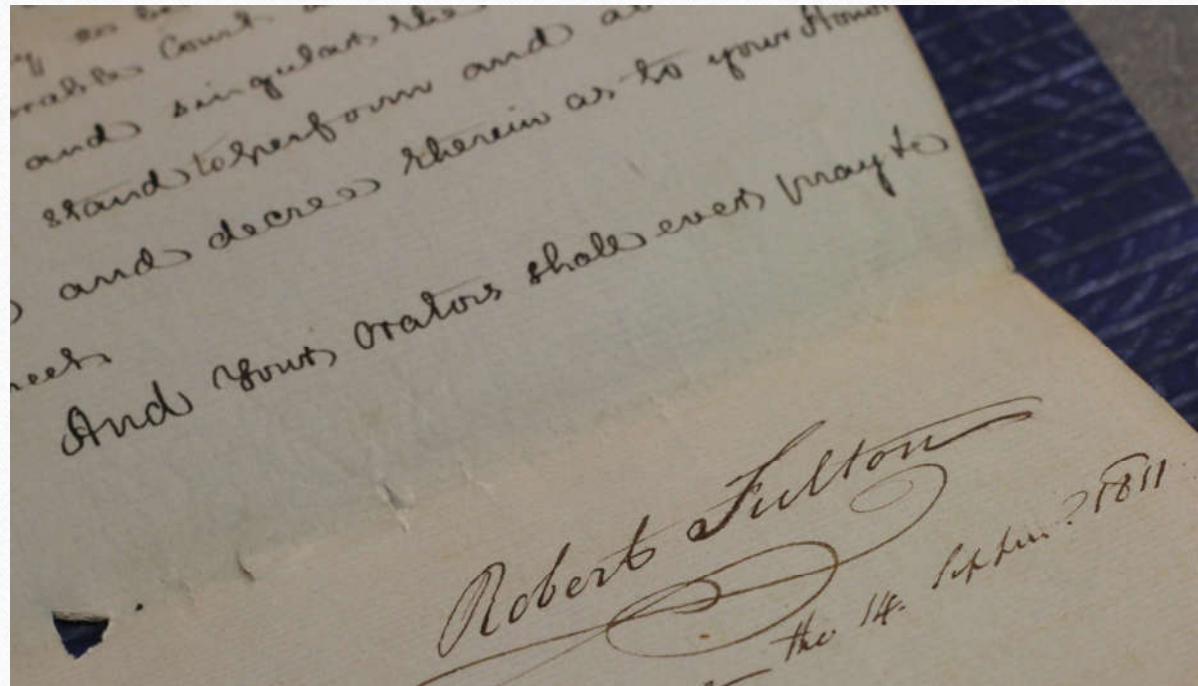 Court
and singular the
stand to perform and
and decree therein as to your Honor
meet
And your orators shall ever pray &c
Robert Fulton
the 14. Septem. 1811